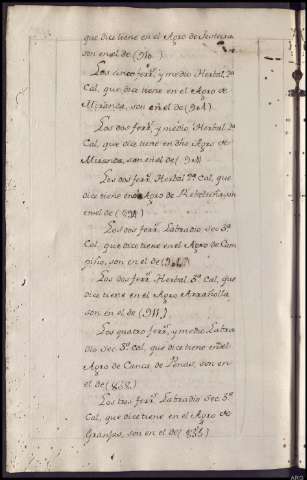 que dice tiene en el Agro de
son en el de (910.)
Los cinco ferr.s y medio Herbal 2ª
Cal, que dice tiene en el Agro de
Miranda, son en el de (904)
Los dos ferr.s y medio Herbal 2ª
Cal, que dice tiene en dho Agro de
Miranda, son en el de (904)
Los dos ferr.s Herbal 2ª Cal, que
dice tiene en el Agro de son
en el de (894)
Los dos ferr.s Labradio Sec 3ª
Cal, que dice tiene en el Agro de Cam
piño, son en el de
Los dos ferr.s Herbal 3ª Cal, que
dice tiene en el Agro Arrañolla
son en el de (911)
Los quatro ferr.s y medio Labra
dio Sec 3ª Cal, que dice tiene en el
Agro de Canca de Penas, son en
el de (828)
Los tres ferr.s Labradio Sec 3ª
Cal, que dice tiene en el Agro de
Granjas, son en el de (836)